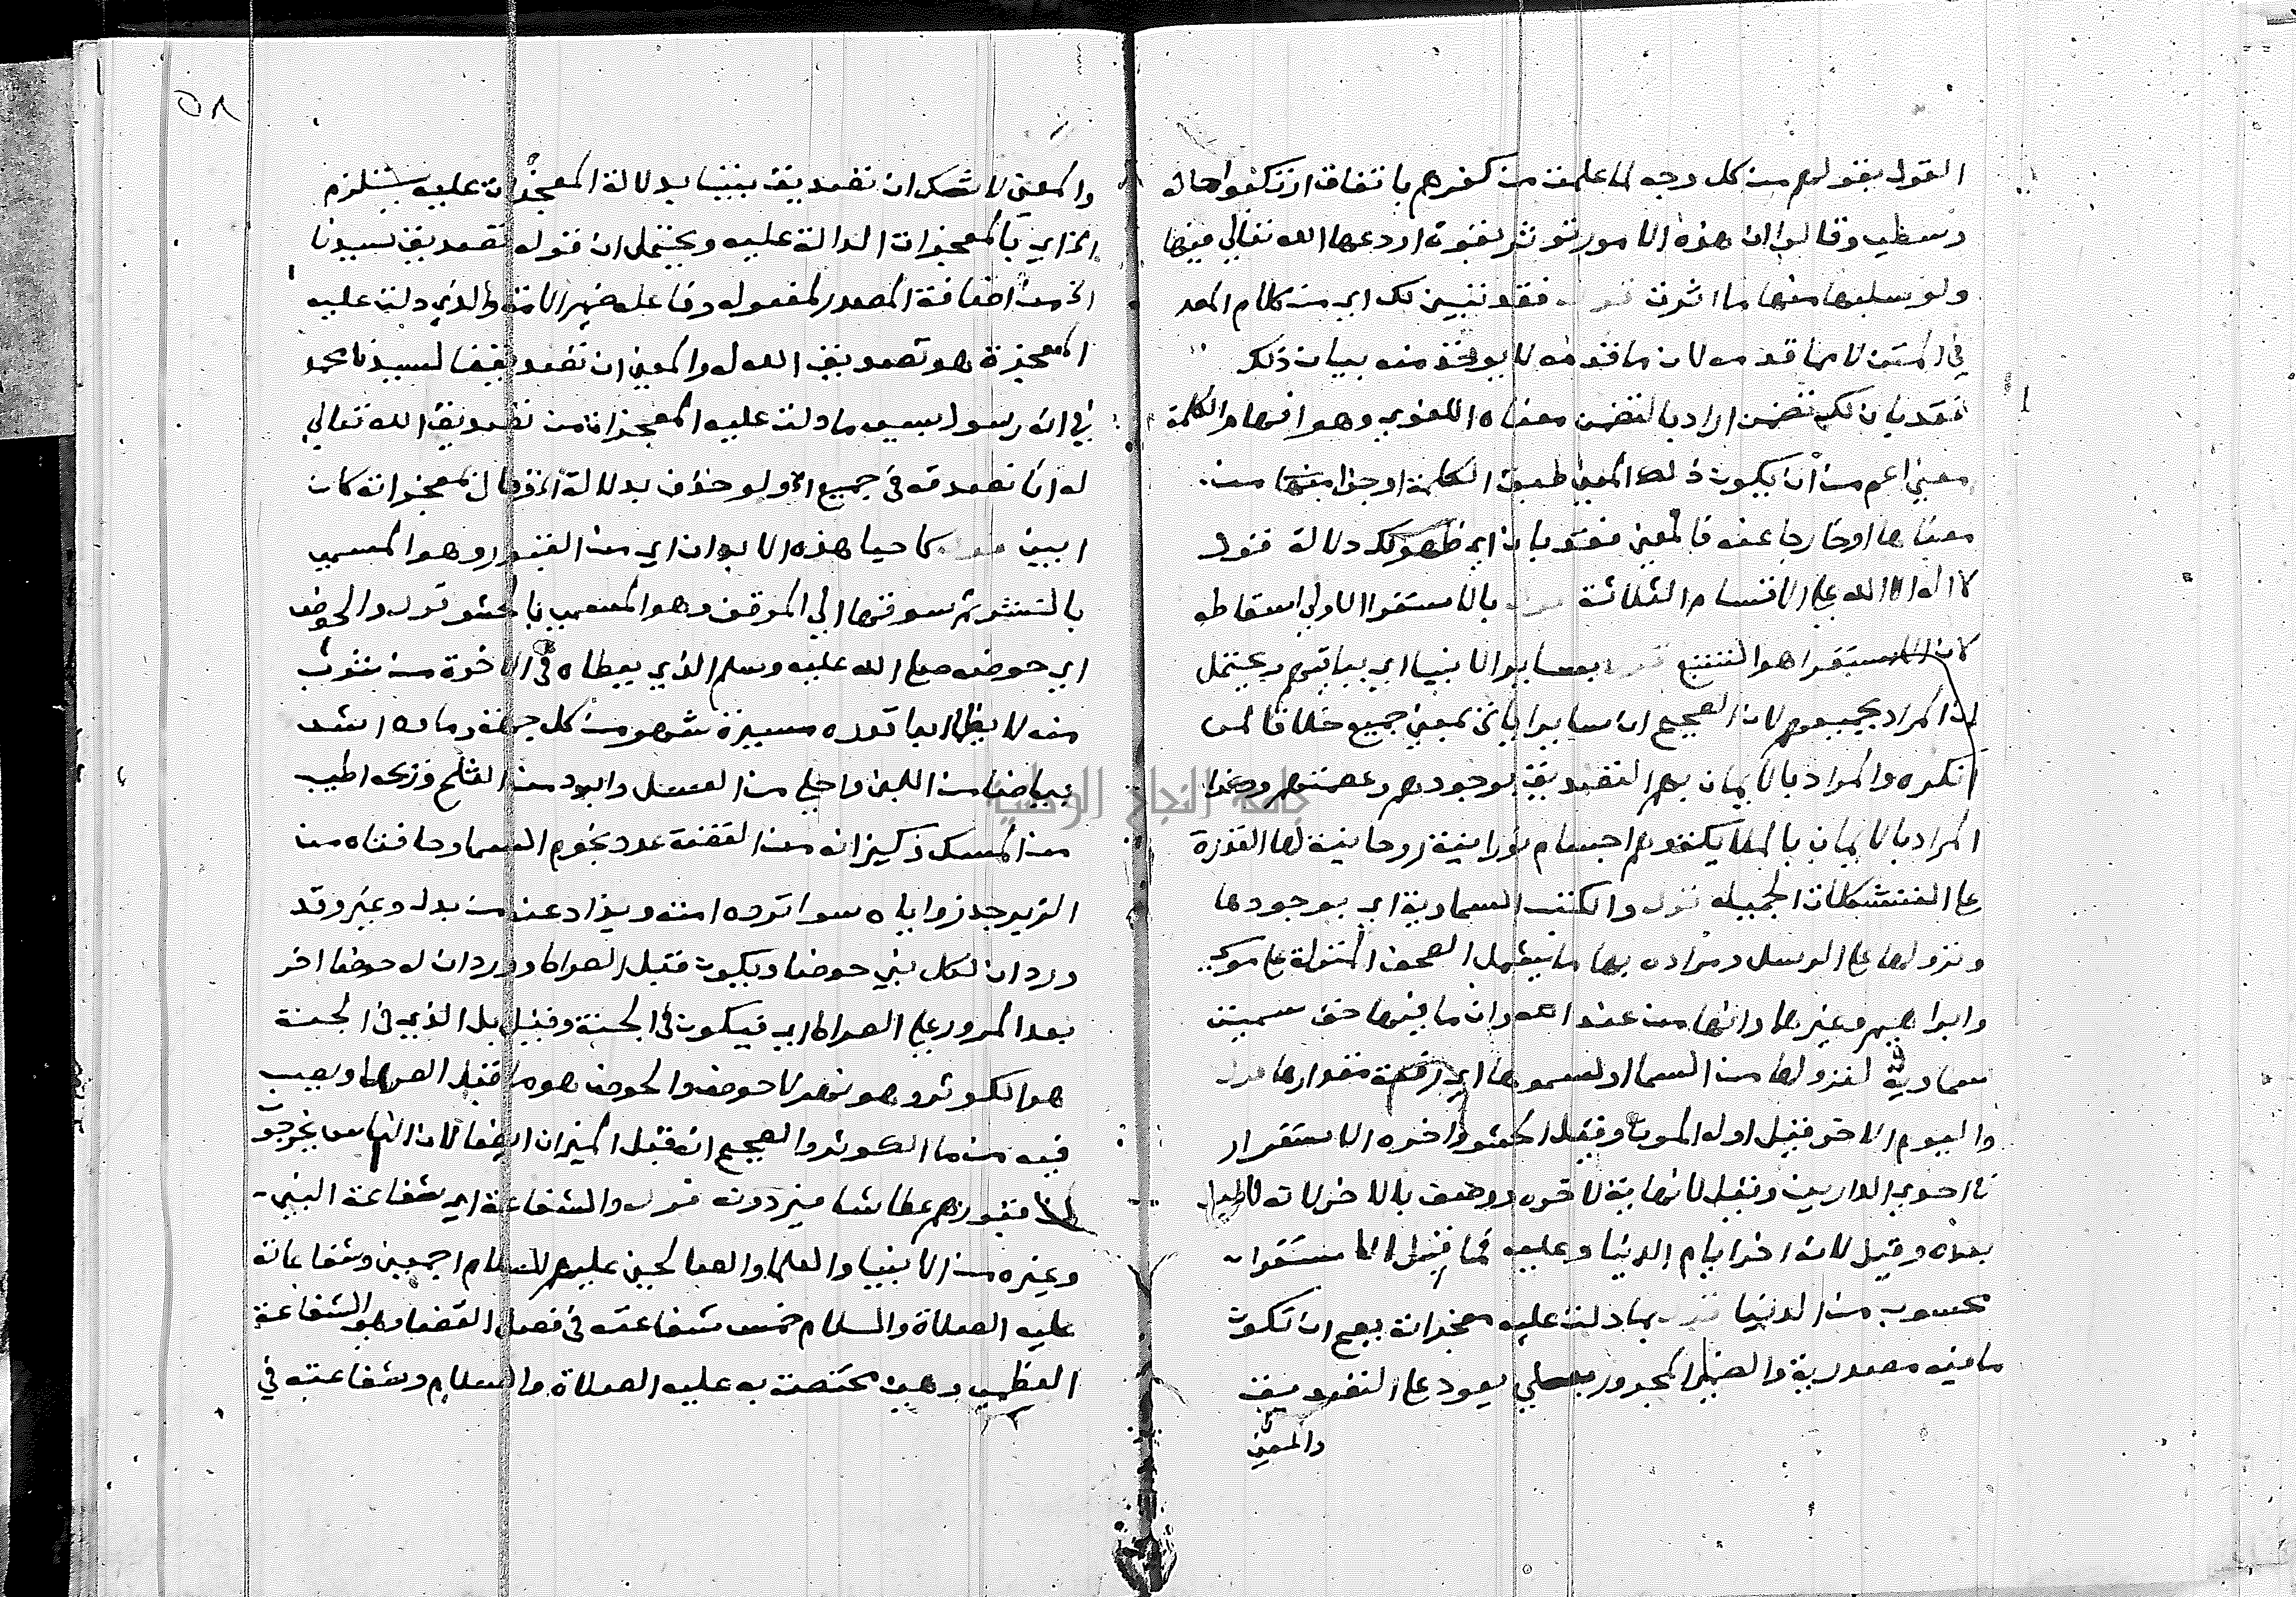 القول بقولهم من كل وجه لما علمت من كفرهم باتفاق ارتكبوا حالة
وسطى وقالوا ان هذه الامور تؤثر بقوة اودعها الله تعالى فيها
ولو سلبها منها ما اثرت قوله فقد تبين لك اي من كلام المصـ
في المتن لا مما قدمه لان ما قدمه لا يوخذ منه بيان ذلك
فقد بان لك تضمن اراد بالتضمن معناه اللغوي وهو افهام الكلمة
معنى اعم من ان يكون ذلك المعنى طبق الكلمة او جزا منها من
معناها او خارجا عنه فالمعنى فقد بان اي ظهر لك دلالة قول
لا اله الا الله على الاقسام الثلاثة قوله بالاستقرا الاولى اسقاطه
لان الاستقرا هو التتبع قوله بسائر الانبيا اي بباقيهم ويحتمل
ان المراد بجميعهم لان الصحيح ان سائر ياتي بمعنى جميع خلافا لمن
انكره والمراد بالايمان بهم التصديق بوجودهم وعصمتهم وكذا
المراد بالايمان بالملايكة وهم اجسام نورانية روحانية لها القدرة
على التشكلات الجميلة قوله والكتب السماوية اي بوجودها
ونزولها على الرسل ومراده بها ما يشمل الصحف المنزلة على موسى
وابراهيم وغيرها وانها من عند الله وان ما فيها حق سميت
سماوية لنزولها من السما او لسموها اي رفعة مقدارها قوله
واليوم الاخر قيل اوله الموت وقيل الحشر واخره الاستقرار
في احدى الدارين وقيل لا نهاية لاخره ووصف بالاخر لانه لا ليل
بعده وقيل لانه اخر ايام الدنيا وعليه فما قبل الاستقرار
محسوب من الدنيا قوله بما دلت عليه معجزاته يصح ان تكون
ما فيه مصدرية والضمير المجرور بعلى يعود على التصديق
والمعنى
والمعنى لا شك ان تصديق نبينا بدلالة المعجزات عليه يستلزم
الخ اي بالمعجزات الدالة عليه ويحتمل ان قوله تصديق سيدنا
الخ من اضافة المصدر لمفعوله وفاعله ضمير الامة والذي دلت عليه
المعجزة هو تصديق الله له والمعنى ان تصديقنا لسيدنا محمد
في انه رسول بسبب ما دلت عليه المعجزات من تصديق الله تعالى
له انا نصدقه في جميع الخ ولو حذف بدلالة الخ وقال بمعجزاته كان
ابين قوله كاحيا هذه الابدان اي من القبور وهو المسمى
بالنشر ثم سوقها الى الموقف وهو المسمى بالحشر قوله والحوض
اي حوضه صلى الله عليه وسلم الذي يعطاه في الاخرة من شرب
منه لا يظما ابدا قدره مسيرة شهر من كل جهة وماوه اشد
بياضا من اللبن واحلى من العسل وابرد من الثلج وريحه اطيب
من المسك وكيزانه من الفضة عدد نجوم السما وحافتاه من
الزبرجد زواياه سوا ترده امته ويذاد عنه من بدل وغير وقد
ورد ان لكل نبي حوضا ويكون قبل الصراط وورد ان له حوضا اخر
بعد المرور على الصراط اي فيكون في الجنة وقيل بل الذي في الجنة
هو الكوثر وهو نهر لا حوض والحوض هو ما قبل الصراط ويصب
فيه من ما الكوثر والصحيح انه قبل الميزان ايضا لان الناس يخرجون
من قبورهم عطاشا فيردونه قوله والشفاعة اي شفاعة النبي
وغيره من الانبيا والعلما والصالحين عليهم السلام اجمعين وشفاعاته
عليه الصلاة والسلام خمس شفاعته في فصل القضا وهو الشفاعة
العظمى وهي مختصة به عليه الصلاة والسلام وشفاعته في
جامعة النجاح الوطنية